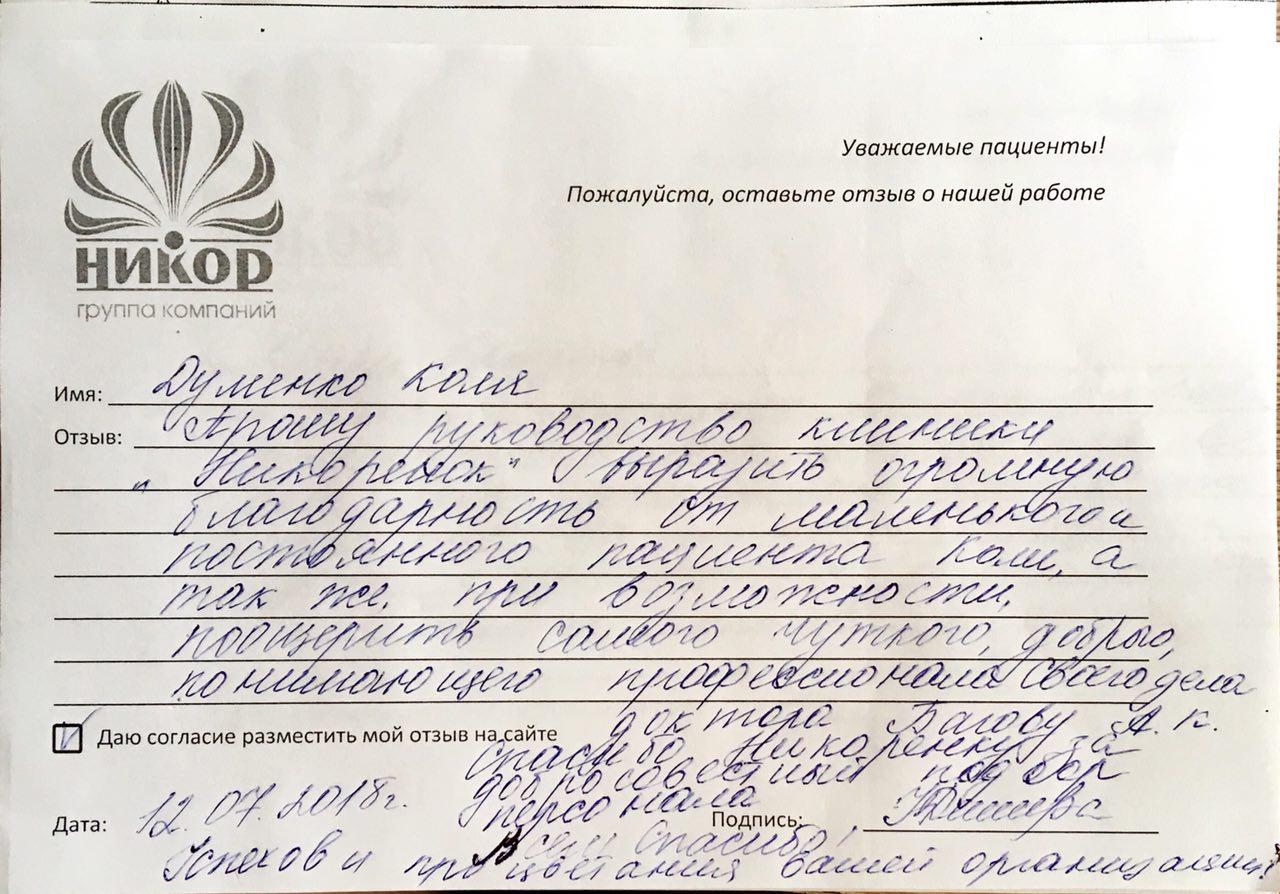 Уважаемые пациенты!
Пожалуйста, оставьте отзыв о нашей работе
НИКОР
группа компаний
Имя: Думенко Коля
Отзыв: Прошу руководство клиники
„Никоренок" выразить огромную
благодарность от маленького и
постоянного пациента Коли, а
так же, при возможности,
поощерить самого чуткого, доброго,
понимающего профессионала своего дела
доктора Багову А.К.
Даю согласие разместить мой отзыв на сайте
Спасибо Никоренку за
добросовестный подбор
персонала
Дата: 12.07.2018г.
Подпись:
Всем Спасибо!
Успехов и процветания вашей организации!